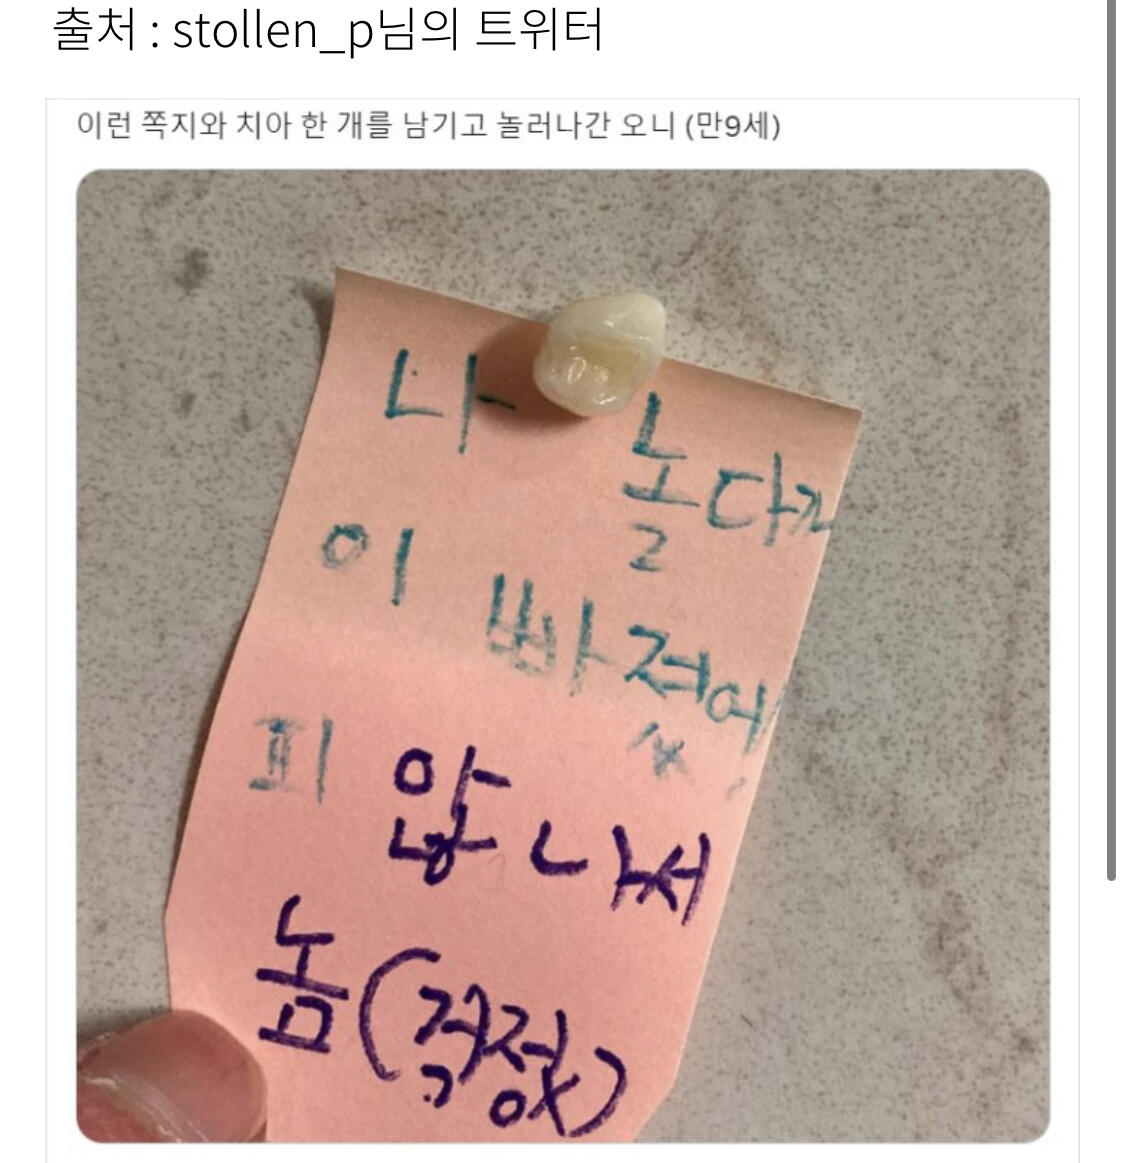 출처 : stollen_p님의 트위터
이런 쪽지와 치아 한 개를 남기고 놀러나간 오니 (만9세)
나 놀다가
이 빠졌어!
피 않나서
놈(걱정X)